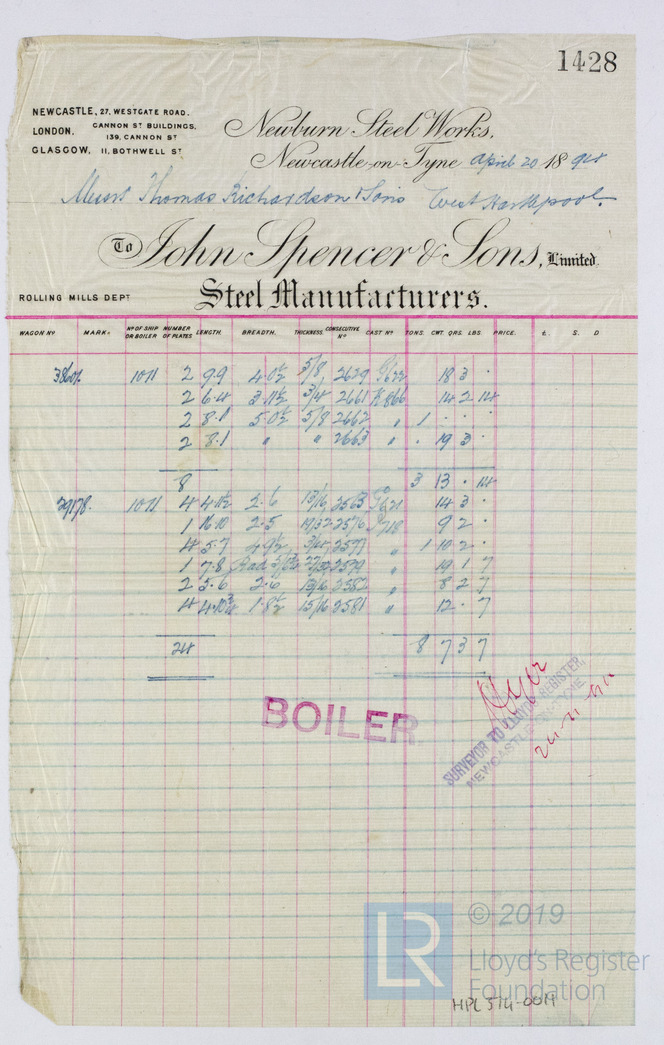 1428
NEWCASTLE, 27, WESTGATE ROAD.
LONDON, CANNON ST BUILDINGS,
139, CANNON ST
GLASGOW, 11, BOTHWELL ST
Newburn Steel Works,
Newcastle-on-Tyne April 20 18
Messrs Thomas Richardson & Sons West Hartlepool.
To John Spencer & Sons, Limited.
ROLLING MILLS DEPT
Steel Manufacturers.
WAGON No MARK. No OF SHIP OR BOILER NUMBER OF PLATES LENGTH. BREADTH. THICKNESS. CONSECUTIVE No CAST No TONS. CWT. QRS. LBS. PRICE. £. S. D
1071 2 9.9 4.0½ 5/8 2629 18 3 .
2 6.4 3.11½ 3/4 2661 14 2 14
2 8.1 5.0½ 5/8 2662 " 1 . . .
2 8.1 " " 2663 " . 19 3 .
8 3 13 . 14
39178. 1071 4 4.11½ 2.6 13/16 2563 14 3 .
1 16.10 2.5 19/32 2576 9 2 .
4 5.7 4.9½ 3/4 2577 " 1 10 2 .
1 7.8 Rad 2579 " 19 1 7
2 5.6 2.6 13/16 2582 " 8 2 7
4 1.8½ 15/16 2581 " 12 . 7
24 8 7 3 7
BOILER
SURVEYOR TO LLOYD'S REGISTER,
NEWCASTLE-ON-TYNE
LR
© 2019
Lloyd's Register
Foundation
HPL514-0019